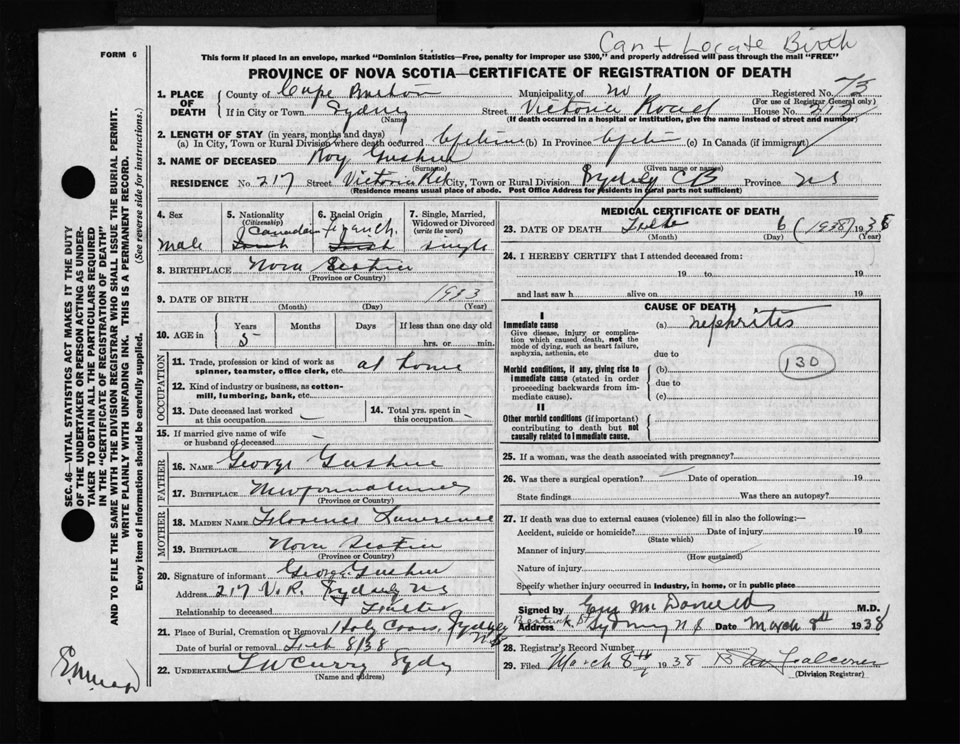 Can't Locate Birth
FORM 6
This form if placed in an envelope, marked "Dominion Statistics—Free, penalty for improper use $300," and properly addressed will pass through the mail "FREE"
PROVINCE OF NOVA SCOTIA—CERTIFICATE OF REGISTRATION OF DEATH
1. PLACE OF DEATH County of Cape Breton Municipality of No 1 Registered No. 73
(For use of Registrar General only)
If in City or Town Sydney Street Victoria Road House No. 217
(Name) (If death occurred in a hospital or institution, give the name instead of street and number)
2. LENGTH OF STAY (in years, months and days)
(a) In City, Town or Rural Division where death occurred lifetime (b) In Province lifetime (c) In Canada (if immigrant)
3. NAME OF DECEASED Roy Gushue
(Surname) (Given name or names)
RESIDENCE No. 217 Street Victoria Rd City, Town or Rural Division Sydney CB Province NS
(Residence means usual place of abode. Post Office Address for residents in rural parts not sufficient)
4. Sex male
5. Nationality (Citizenship) Canadian
6. Racial Origin French
7. Single, Married, Widowed or Divorced (write the word) single
8. BIRTHPLACE Nova Scotia
(Province or Country)
9. DATE OF BIRTH 1933
(Month) (Day) (Year)
10. AGE in Years 5 Months Days If less than one day old hrs. or min.
OCCUPATION
11. Trade, profession or kind of work as spinner, teamster, office clerk, etc. at home
12. Kind of industry or business, as cotton-mill, lumbering, bank, etc.
13. Date deceased last worked at this occupation
14. Total yrs. spent in this occupation
15. If married give name of wife or husband of deceased
FATHER
16. NAME George Gushue
17. BIRTHPLACE Newfoundland
(Province or Country)
MOTHER
18. MAIDEN NAME Florence Lawrence
19. BIRTHPLACE Nova Scotia
(Province or Country)
20. Signature of informant George Gushue
Address 217 V.R. Sydney NS
Relationship to deceased Father
21. Place of Burial, Cremation or Removal Holy Cross, Sydney NS
Date of burial or removal Feb 8/38
22. UNDERTAKER T W Curry Sydney
(Name and address)
MEDICAL CERTIFICATE OF DEATH
23. DATE OF DEATH Feb 6 (1938) 1938
(Month) (Day) (Year)
24. I HEREBY CERTIFY that I attended deceased from:
19 to 19
and last saw h alive on 19
CAUSE OF DEATH
I
Immediate cause (a) nephritis
Give disease, injury or complication which caused death, not the mode of dying, such as heart failure, asphyxia, asthenia, etc
due to
130
Morbid conditions, if any, giving rise to immediate cause (stated in order proceeding backwards from immediate cause).
(b)
due to
(c)
II
Other morbid conditions (if important) contributing to death but not causally related to immediate cause.
25. If a woman, was the death associated with pregnancy?
26. Was there a surgical operation? Date of operation 19
State findings Was there an autopsy?
27. If death was due to external causes (violence) fill in also the following:—
Accident, suicide or homicide? Date of injury 19
(State which)
Manner of injury
(How sustained)
Nature of injury
Specify whether injury occurred in industry, in home, or in public place
Signed by McDonald M.D.
Address Sydney NS Date March 8th 1938
28. Registrar's Record Number
29. Filed March 8th 1938 Falconer
(Division Registrar)
SEC. 46—VITAL STATISTICS ACT MAKES IT THE DUTY
OF THE UNDERTAKER OR PERSON ACTING AS UNDERTAKER TO OBTAIN ALL THE PARTICULARS REQUIRED
IN THE "CERTIFICATE OF REGISTRATION OF DEATH"
AND TO FILE THE SAME WITH THE DIVISION REGISTRAR WHO SHALL ISSUE THE BURIAL PERMIT.
WRITE PLAINLY WITH UNFADING INK. THIS IS A PERMANENT RECORD.
Every item of information should be carefully supplied. (See reverse side for instructions.)